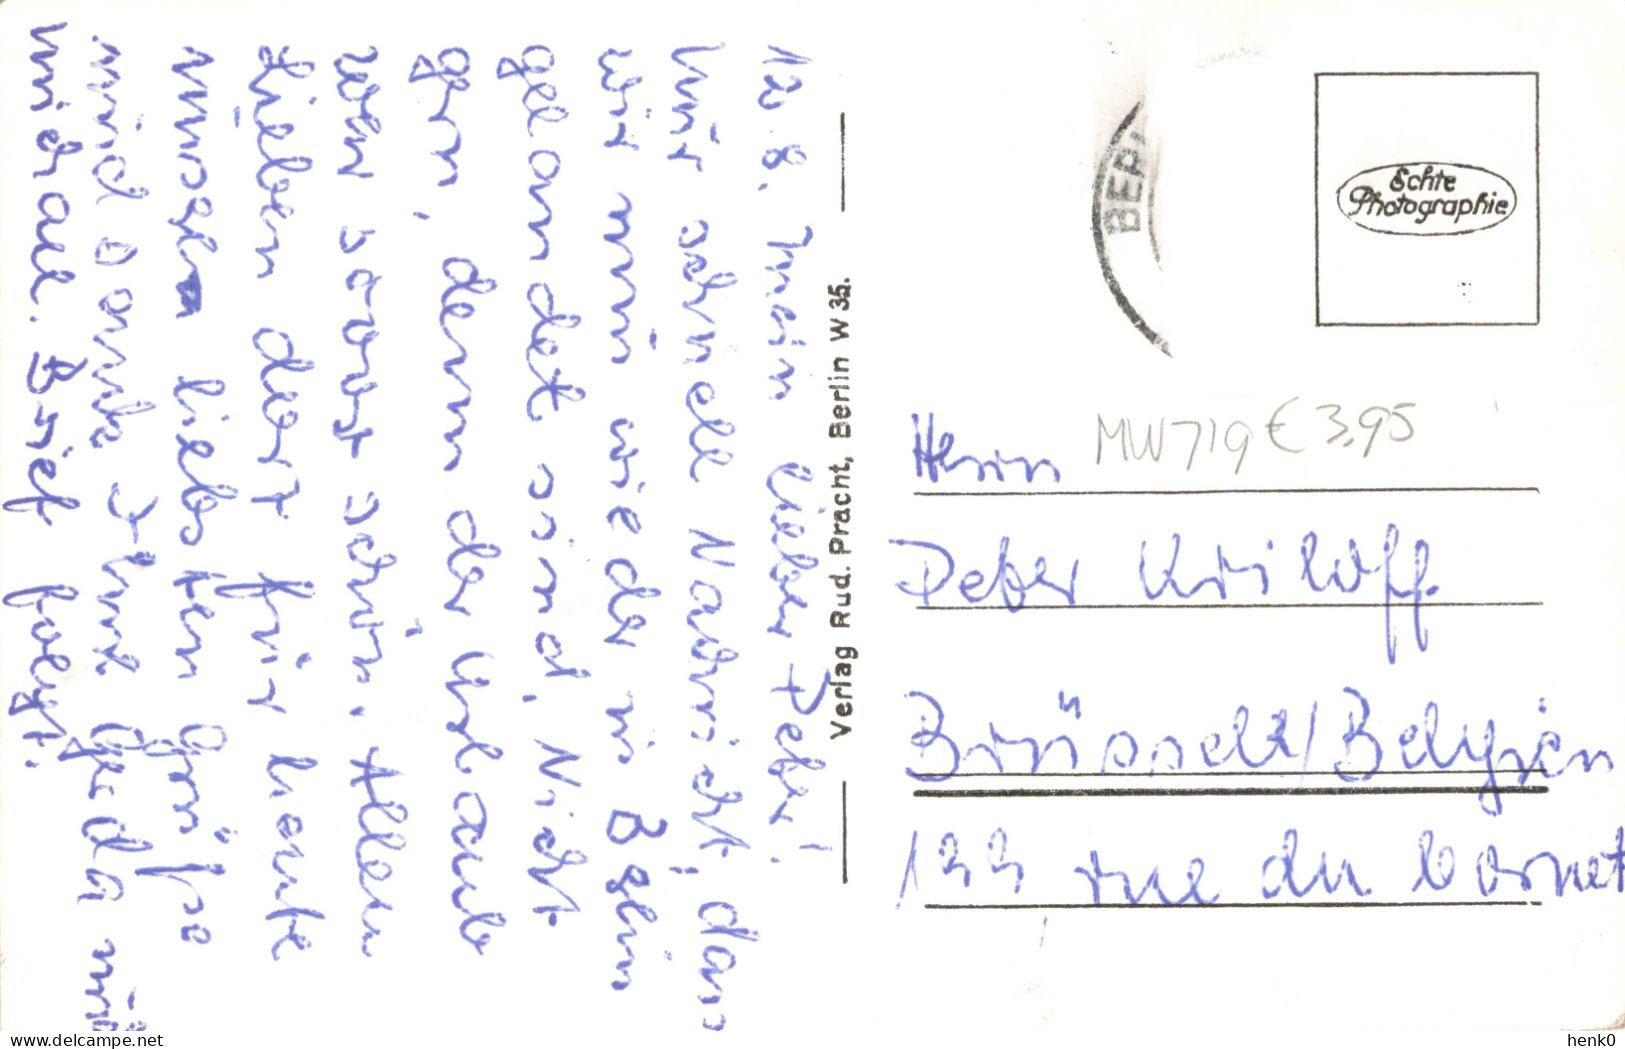 12.8. Mein lieber Peter!
Nur schnell Nachricht, dass
wir nun wieder in Berlin
gelandet sind. Nicht
gern, denn der Urlaub
war soooo schön. Allen
Lieben dort für heute
unsere liebsten Grüsse
und Dank
Michael. Brief folgt.
Verlag Rud. Pracht, Berlin W 35.
BERL
Echte
Photographie
MW719 € 3,95
Herrn
Peter Kriloff
Brüssel/Belgien
rue du Cornet
henk0